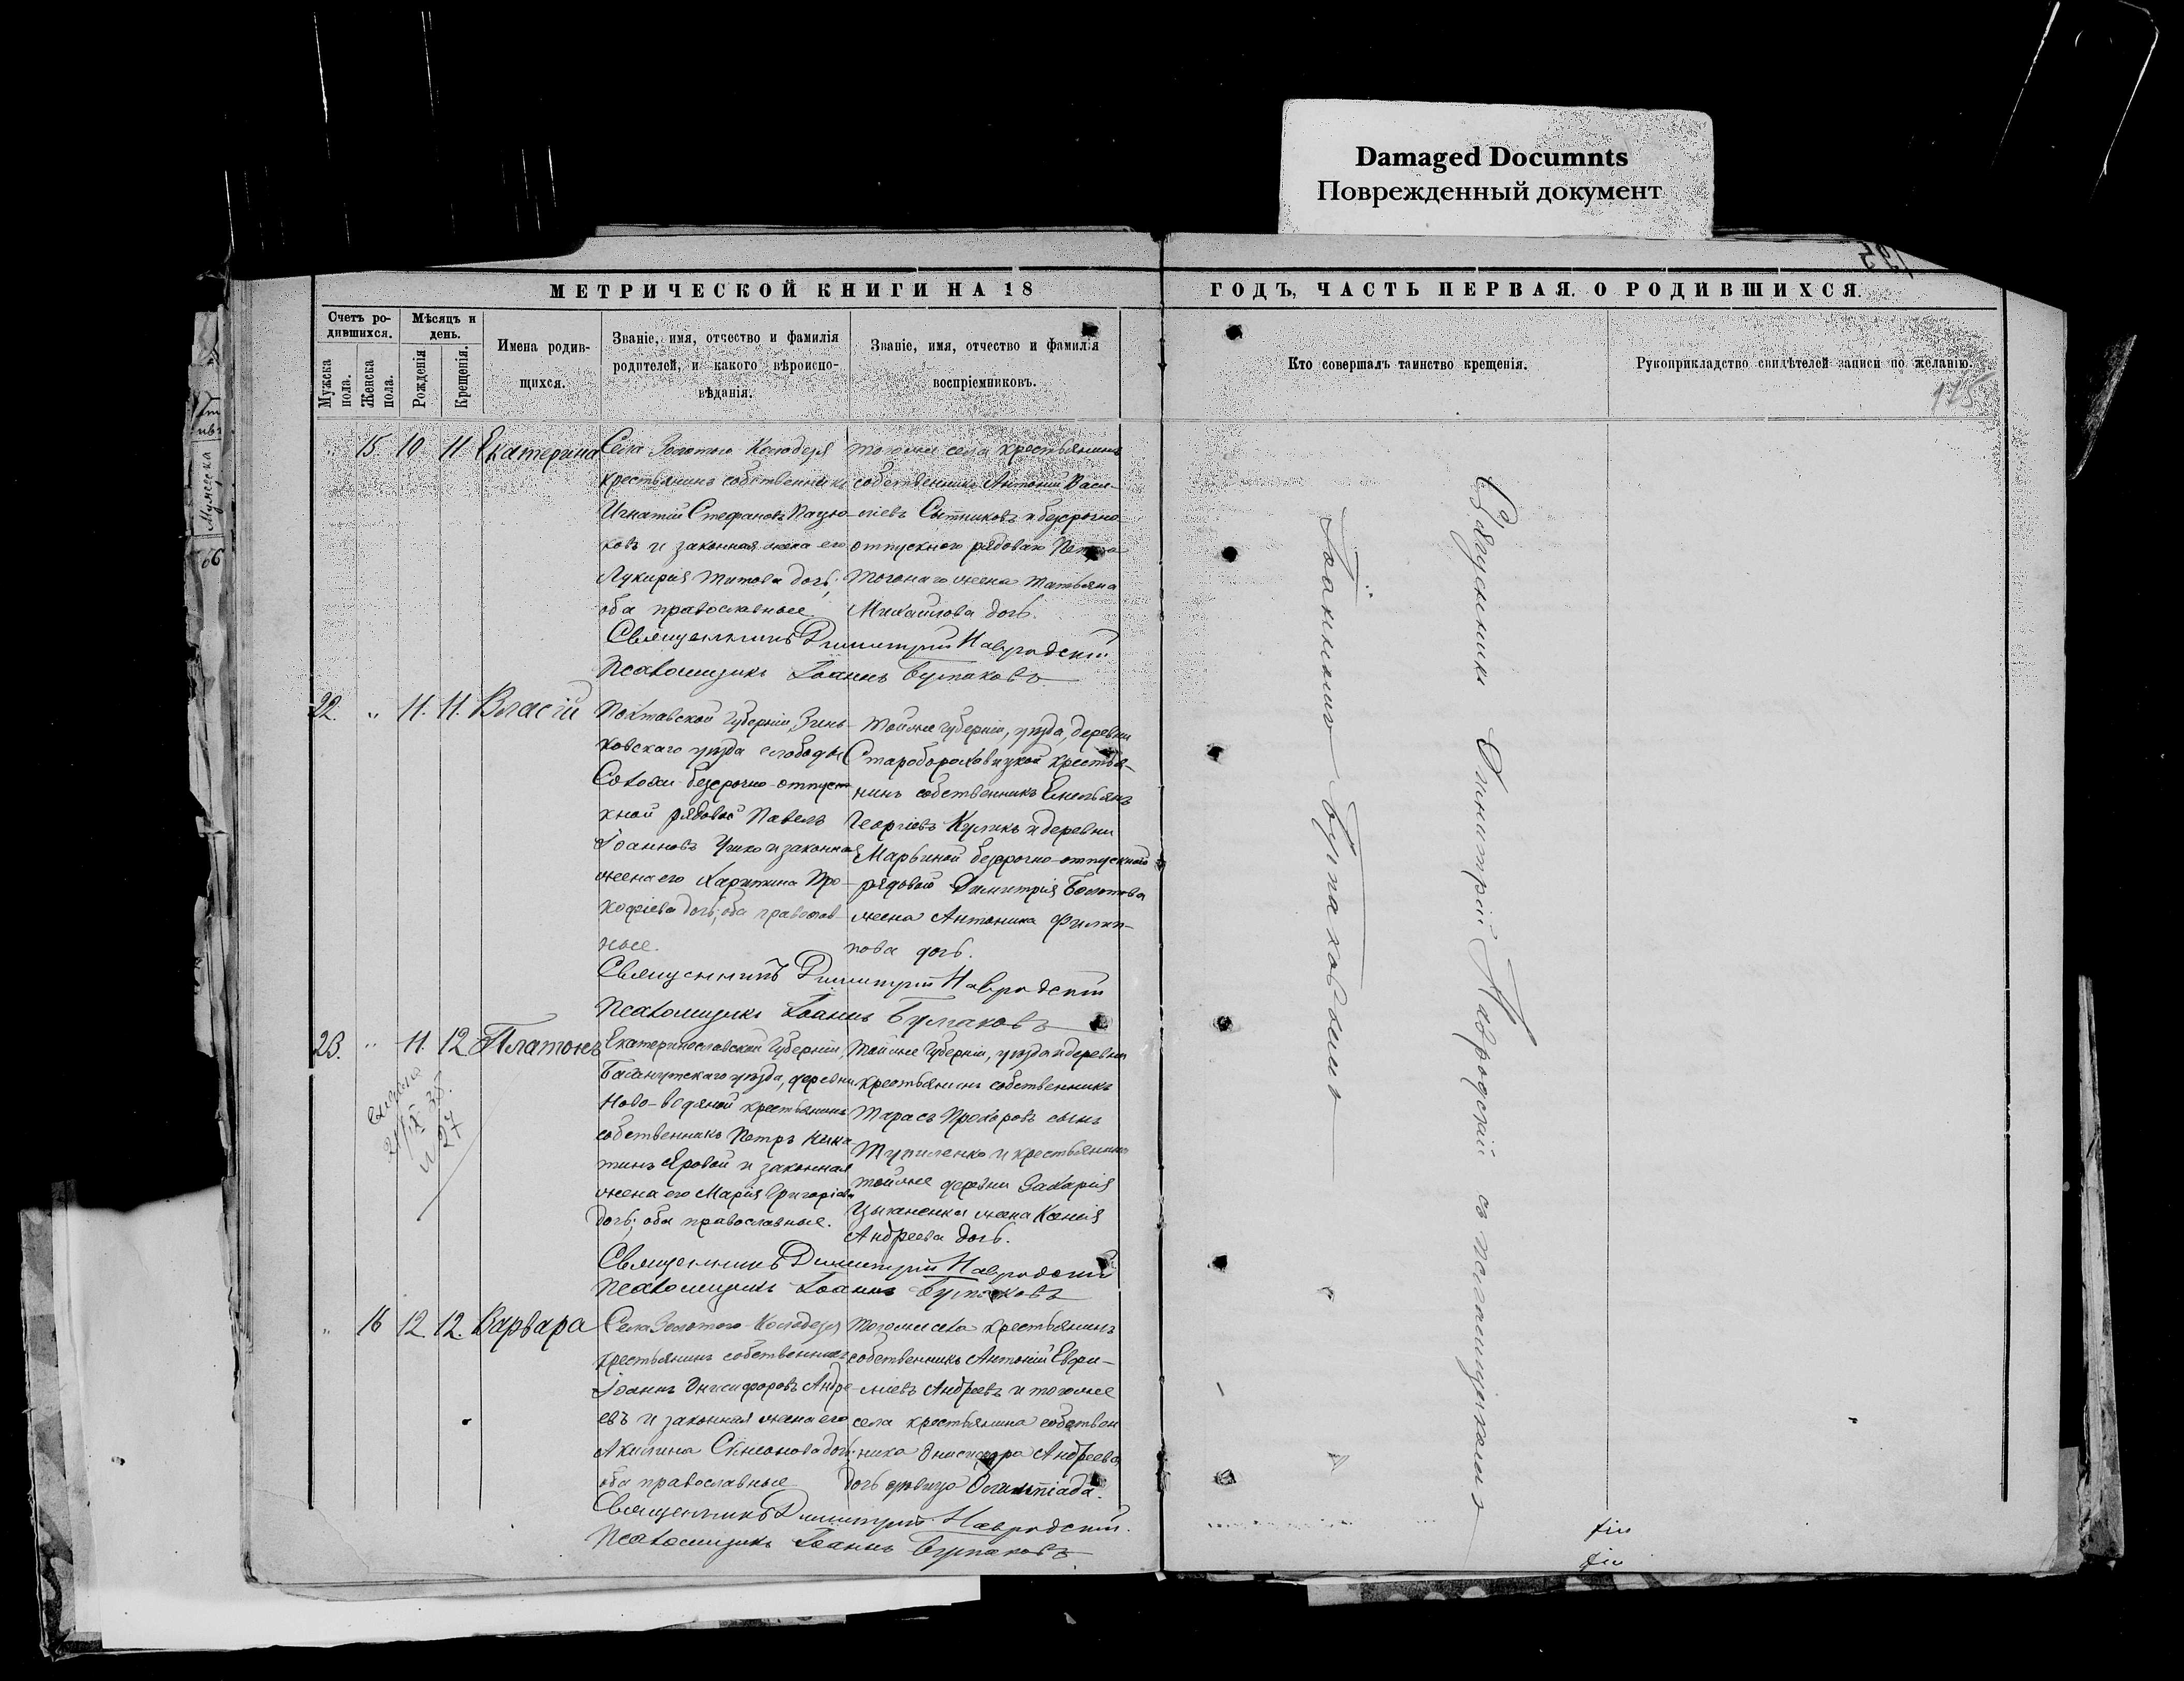 Damaged Documnts
Поврежденный документ
МЕТРИЧЕСКОЙ КНИГИ НА 18
ГОДЪ, ЧАСТЬ ПЕРВАЯ. О РОДИВШИХСЯ.
Счетъ ро-
дившихся.
Мужска
пола.
Женска
пола.
Мѣсяцъ и
день.
Рожденія
Крещенія.
Имена родив-
шихся.
Званіе, имя, отчество и фамилія
родителей, и какого вѣроиспо-
вѣданія.
Званіе, имя, отчество и фамилія
воспріемниковъ.
Кто совершалъ таинство крещенія.
Рукоприкладство свидѣтелей записи по желанію.
15. 10 11 Екатерина
Села Золотого Колодезя
крестьянинъ собственникъ
Игнатій Стефановъ
ковъ и законная жена его
Лукирія Титова дочь;
оба православные
тогоже села крестьянинъ
собственникъ Антоній Васи-
ліевъ Сытниковъ и безсрочно
отпускного рядового
жена Татьяна
Михайлова дочь.
Священникъ Димитрій Навродскій
Псаломщикъ Іоаннъ Булгаковъ
22. " 11. 11. Власій
Полтавской губерніи, Зинь-
ковскаго уѣзда слободы
безсрочно-отпуск
кной рядовой Павелъ
Іоанновъ и законная
жена его Харитина Про-
кофіева дочь; оба православ-
ные.
Тойже губерніи, уѣзда, деревни
крестья-
нинъ собственникъ Емельянъ
Георгіевъ Куликъ и деревни
Марьиной безсрочно-отпускного
рядового Димитрія Болотова
жена Антонина Филип-
пова дочь.
Священникъ Димитрій Навродскій
Псаломщикъ Іоаннъ Булгаковъ
23. " 11. 12 Платонъ
Екатеринославской губерніи,
Бахмутскаго уѣзда, деревни
Ново-водяной крестьянинъ
собственникъ Петръ Ники
тинъ Яровой и законная
жена его Марія Григоріева
дочь; оба православные.
Тойже губерніи, уѣзда и деревни
крестьянинъ собственникъ
Тарасъ Прохоровъ сынъ
и крестьянина
тойже деревни Захарія
Цыганенка жена Ксенія
Андреева дочь.
Священникъ Димитрій Навродскій
Псаломщикъ Іоаннъ Булгаковъ
" 16 12 12. Варвара
Села Золотого-Колодезя
крестьянинъ собственникъ
Іоаннъ Онисифоровъ Андре
евъ и законная жена его
Акилина Симонова дочь;
оба православные
тогоже села крестьянинъ
собственникъ Антоній Евфи-
міевъ Андреевъ и тогоже
села крестьянина собствен
ника Онисифора Андреева
дочь дѣвица Олимпіада.
Священникъ Димитрій Навродскій.
Псаломщикъ Іоаннъ Булгаковъ
Священникъ Димитрій Навродскій съ псаломщикомъ
Іоанномъ Булгаковымъ